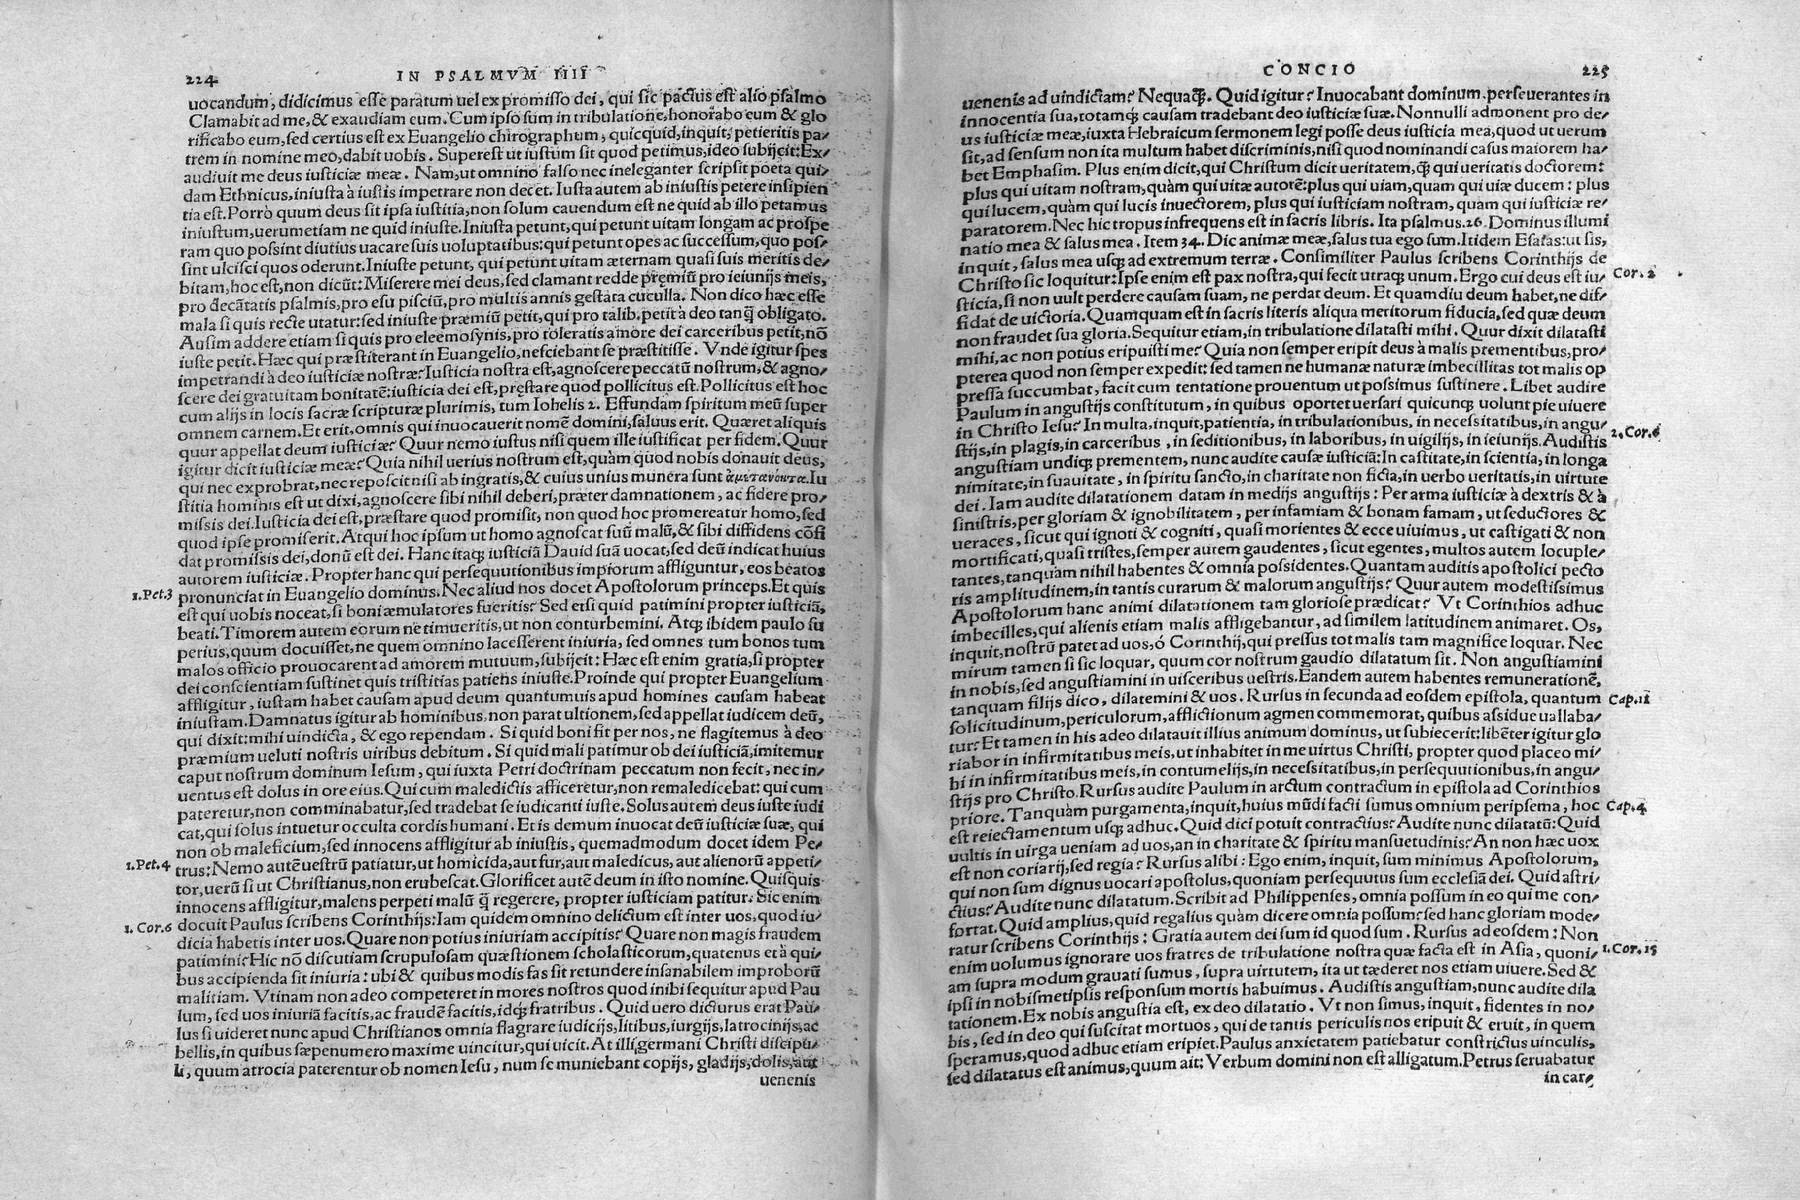 224 IN PSALMVM IIII
uocandum, didicimus esse paratum uel ex promisso dei, qui sic pactus est alio psalmo
Clamabit ad me, & exaudiam eum. Cum ipso sum in tribulatione, honorabo eum & glo
rificabo eum, sed certius est ex Euangelio chirographum, quicquid, inquit, petieritis pa/
trem in nomine meo, dabit uobis. Superest ut iustum sit quod petimus, ideo subijcit: Ex/
audiuit me deus iusticiæ meæ. Nam, ut omnino falso nec ineleganter scripsit poeta qui/
dam Ethnicus, iniusta à iustis impetrare non decet. Iusta autem ab iniustis petere insipien
tia est. Porrò quum deus sit ipsa iustitia, non solum cauendum est ne quid ab illo petamus
iniustum, uerumetiam ne quid iniuste. Iniusta petunt, qui petunt uitam longam ac prospe
ram quo possint diutius uacare suis uoluptatibus: qui petunt opes ac successum, quo pos/
sint ulcisci quos oderunt. Iniuste petunt, qui petunt uitam æternam quasi suis meritis de/
bitam, hoc est, non dicũt: Miserere mei deus, sed clamant redde pręmiũ pro ieiunijs meis,
pro decãtatis psalmis, pro esu pisciũ, pro multis annis gestata cuculla. Non dico hæc esse
mala si quis recte utatur: sed iniuste præmiũ petit, qui pro talib. petit à deo tanq̃ obligato.
Ausim addere etiam si quis pro eleemosynis, pro toleratis amore dei carceribus petit, nõ
iuste petit. Hæc qui præstiterant in Euangelio, nesciebant se præstitisse. Vnde igitur spes
impetrandi à deo iusticiæ nostræ? Iusticia nostra est, agnoscere peccatũ nostrum, & agno/
scere dei gratuitam bonitatẽ: iusticia dei est, pręstare quod pollicitus est. Pollicitus est hoc
cum alijs in locis sacræ scripturæ plurimis, tum Iohelis 2. Effundam spiritum meũ super
omnem carnem. Et erit, omnis qui inuocauerit nomẽ domini, saluus erit. Quæret aliquis
quur appellat deum iusticiæ? Quur nemo iustus nisi quem ille iustificat per fidem. Quur
igitur dicit iusticiæ meæ? Quia nihil uerius nostrum est, quàm quod nobis donauit deus,
qui nec exprobrat, nec reposcit nisi ab ingratis, & cuius unius munera sunt ἀμετανόητα. Iu
stitia hominis est ut dixi, agnoscere sibi nihil deberi, præter damnationem, ac fidere pro/
missis dei. Iusticia dei est, præstare quod promisit, non quod hoc promereatur homo, sed
quod ipse promiserit. Atqui hoc ipsum ut homo agnoscat suũ malũ, & sibi diffidens cõfi
dat promissis dei, donũ est dei. Hanc itaq; iusticiã Dauid suã uocat, sed deũ indicat huius
autorem iusticiæ. Propter hanc qui persequutionibus impiorum affliguntur, eos beatos
1.Pet.3 pronunciat in Euangelio dominus. Nec aliud nos docet Apostolorum princeps. Et quis
est qui uobis noceat, si boni æmulatores fueritis? Sed etsi quid patimini propter iusticiã,
beati. Timorem autem eorum ne timueritis, ut non conturbemini. Atq; ibidem paulo su
perius, quum docuisset, ne quem omnino lacesserent iniuria, sed omnes tum bonos tum
malos officio prouocarent ad amorem mutuum, subijcit: Hæc est enim gratia, si propter
dei conscientiam sustinet quis tristitias patiens iniuste. Proinde qui propter Euangelium
affligitur, iustam habet causam apud deum quantumuis apud homines causam habeat
iniustam. Damnatus igitur ab hominibus, non parat ultionem, sed appellat iudicem deũ,
qui dixit: mihi uindicta, & ego rependam. Si quid boni fit per nos, ne flagitemus à deo
præmium ueluti nostris uiribus debitum. Si quid mali patimur ob dei iusticiã, imitemur
caput nostrum dominum Iesum, qui iuxta Petri doctrinam peccatum non fecit, nec in/
uentus est dolus in ore eius. Qui cum maledictis afficeretur, non remaledicebat: qui cum
pateretur, non comminabatur, sed tradebat se iudicanti iuste. Solus autem deus iuste iudi
cat, qui solus intuetur occulta cordis humani. Et is demum inuocat deũ iusticiæ suæ, qui
non ob maleficium, sed innocens affligitur ab iniustis, quemadmodum docet idem Pe/
1.Pet.4 trus: Nemo autẽ uestrũ patiatur, ut homicida, aut fur, aut maledicus, aut alienorũ appeti/
tor, uerũ si ut Christianus, non erubescat. Glorificet autẽ deum in isto nomine. Quisquis
innocens affligitur, malens perpeti malũ q̃ regerere, propter iusticiam patitur. Sic enim
1. Cor.6 docuit Paulus scribens Corinthijs: Iam quidem omnino delictum est inter uos, quod iu/
dicia habetis inter uos. Quare non potius iniuriam accipitis? Quare non magis fraudem
patimini? Hic nõ discutiam scrupulosam quæstionem scholasticorum, quatenus et à qui/
bus accipienda sit iniuria: ubi & quibus modis fas sit retundere insanabilem improborũ
malitiam. Vtinam non adeo competeret in mores nostros quod inibi sequitur apud Pau
lum, sed uos iniuriã facitis, ac fraudẽ facitis, idq; fratribus. Quid uero dicturus erat Pau/
lus si uideret nunc apud Christianos omnia flagrare iudicijs, litibus, iurgijs, latrocinijs, ac
bellis, in quibus sæpenumero maxime uincitur, qui uicit. At illi germani Christi discipu/
li, quum atrocia paterentur ob nomen Iesu, num se muniebant copijs, gladijs, dolis, aut
uenenis
CONCIO 225
uenenis ad uindictam? Nequaq̃. Quid igitur? Inuocabant dominum. perseuerantes in
innocentia sua, totamq; causam tradebant deo iusticiæ suæ. Nonnulli admonent pro de/
us iusticiæ meæ, iuxta Hebraicum sermonem legi posse deus iusticia mea, quod ut uerum
sit, ad sensum non ita multum habet discriminis, nisi quod nominandi casus maiorem ha/
bet Emphasim. Plus enim dicit, qui Christum dicit ueritatem, q̃ qui ueritatis doctorem:
plus qui uitam nostram, quàm qui uitæ autorẽ: plus qui uiam, quam qui uiæ ducem: plus
qui lucem, quàm qui lucis inuectorem, plus qui iusticiam nostram, quam qui iusticiæ re/
paratorem. Nec hic tropus infrequens est in sacris libris. Ita psalmus.26. Dominus illumi
natio mea & salus mea. Item 34. Dic animæ meæ, salus tua ego sum. Itidem Esaias: ut sis,
inquit, salus mea usq; ad extremum terræ. Consimiliter Paulus scribens Corinthijs de
Christo sic loquitur: Ipse enim est pax nostra, qui fecit utraq; unum. Ergo cui deus est iu/ Cor. 2
sticia, si non uult perdere causam suam, ne perdat deum. Et quamdiu deum habet, ne dif/
fidat de uictoria. Quamquam est in sacris literis aliqua meritorum fiducia, sed quæ deum
non fraudet sua gloria. Sequitur etiam, in tribulatione dilatasti mihi. Quur dixit dilatasti
mihi, ac non potius eripuisti me? Quia non semper eripit deus à malis prementibus, pro/
pterea quod non semper expedit: sed tamen ne humanæ naturæ imbecillitas tot malis op
pressa succumbat, facit cum tentatione prouentum ut possimus sustinere. Libet audire
Paulum in angustijs constitutum, in quibus oportet uersari quicunq; uolunt pie uiuere
in Christo Iesu? In multa, inquit, patientia, in tribulationibus, in necessitatibus, in angu/
stijs, in plagis, in carceribus, in seditionibus, in laboribus, in uigilijs, in ieiunijs. Audistis 2. Cor.6
angustiam undiq; prementem, nunc audite causæ iusticiã: In castitate, in scientia, in longa
nimitate, in suauitate, in spiritu sancto, in charitate non ficta, in uerbo ueritatis, in uirtute
dei. Iam audite dilatationem datam in medijs angustijs: Per arma iusticiæ à dextris & à
sinistris, per gloriam & ignobilitatem, per infamiam & bonam famam, ut seductores &
ueraces, sicut qui ignoti & cogniti, quasi morientes & ecce uiuimus, ut castigati & non
mortificati, quasi tristes, semper autem gaudentes, sicut egentes, multos autem locuple/
tantes, tanquàm nihil habentes & omnia possidentes. Quantam auditis apostolici pecto
ris amplitudinem, in tantis curarum & malorum angustijs? Quur autem modestissimus
Apostolorum hanc animi dilatationem tam gloriose prædicat? Vt Corinthios adhuc
imbecilles, qui alienis etiam malis affligebantur, ad similem latitudinem animaret. Os,
inquit, nostrũ patet ad uos, ó Corinthij, qui pressus tot malis tam magnifice loquar. Nec
mirum tamen si sic loquar, quum cor nostrum gaudio dilatatum sit. Non angustiamini
in nobis, sed angustiamini in uisceribus uestris. Eandem autem habentes remunerationẽ,
tanquam filijs dico, dilatemini & uos. Rursus in secunda ad eosdem epistola, quantum Cap.12
solicitudinum, periculorum, afflictionum agmen commemorat, quibus assidue uallaba/
tur? Et tamen in his adeo dilatauit illius animum dominus, ut subiecerit: libẽter igitur glo
riabor in infirmitatibus meis, ut inhabitet in me uirtus Christi, propter quod placeo mi/
hi in infirmitatibus meis, in contumelijs, in necessitatibus, in persequutionibus, in angu/
stijs pro Christo. Rursus audite Paulum in arctum contractum in epistola ad Corinthios
priore. Tanquàm purgamenta, inquit, huius mũdi facti sumus omnium peripsema, hoc Cap.4
est reiectamentum usq; adhuc. Quid dici potuit contractius? Audite nunc dilatatũ: Quid
uultis in uirga ueniam ad uos, an in charitate & spiritu mansuetudinis? An non hæc uox
est non coriarij, sed regia? Rursus alibi: Ego enim, inquit, sum minimus Apostolorum,
qui non sum dignus uocari apostolus, quoniam persequutus sum ecclesiã dei. Quid astri/
ctius? Audite nunc dilatatum. Scribit ad Philippenses, omnia possum in eo qui me con/
fortat. Quid amplius, quid regalius quàm dicere omnia possum? sed hanc gloriam mode/
ratur scribens Corinthijs: Gratia autem dei sum id quod sum. Rursus ad eosdem: Non
enim uolumus ignorare uos fratres de tribulatione nostra quæ facta est in Asia, quoni/ 1. Cor. 15
am supra modum grauati sumus, supra uirtutem, ita ut tæderet nos etiam uiuere. Sed &
ipsi in nobismetipsis responsum mortis habuimus. Audistis angustiam, nunc audite dila
tationem. Ex nobis angustia est, ex deo dilatatio. Vt non simus, inquit, fidentes in no/
bis, sed in deo qui suscitat mortuos, qui de tantis periculis nos eripuit & eruit, in quem
speramus, quod adhuc etiam eripiet. Paulus anxietatem patiebatur constrictus uinculis,
sed dilatatus est animus, quum ait: Verbum domini non est alligatum. Petrus seruabatur
in car/